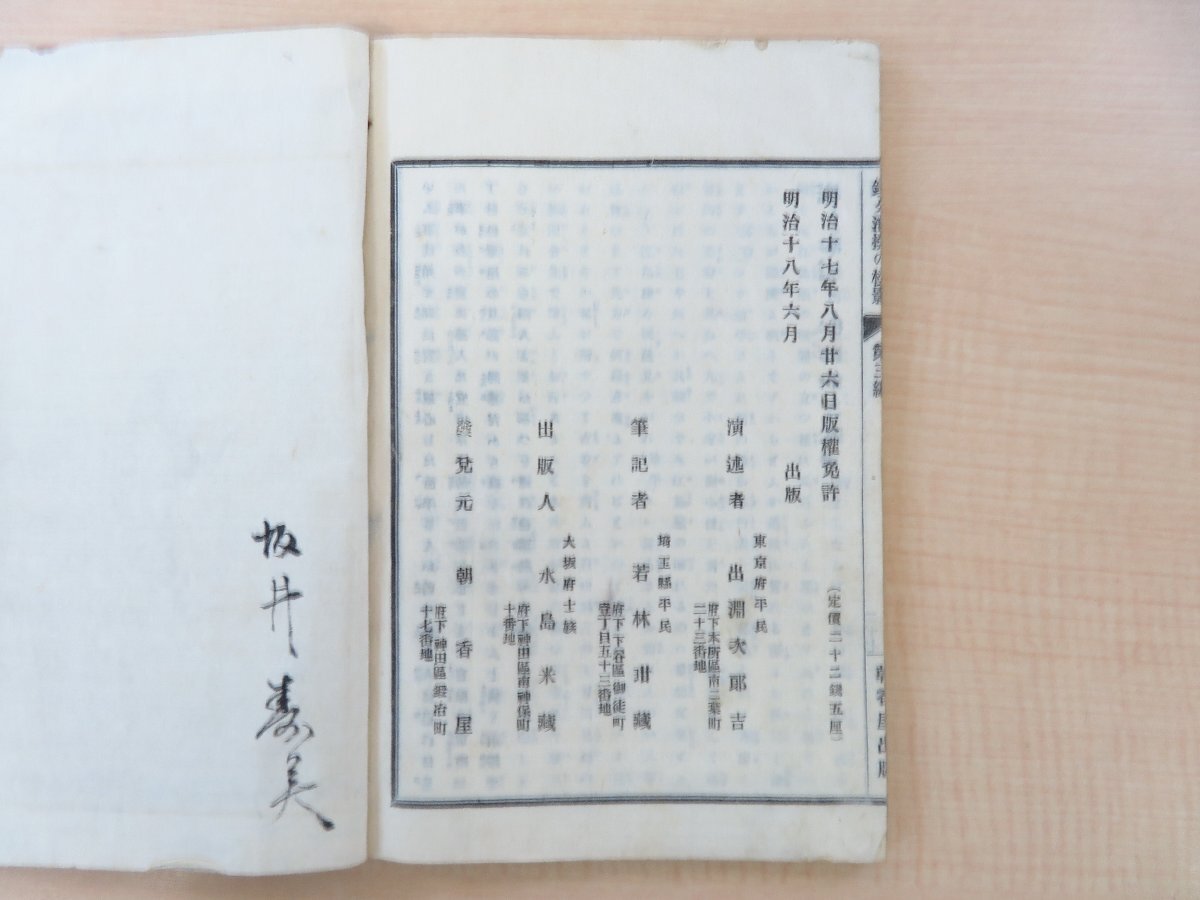 明治十七年八月廿六日版權免許
（定價二十二錢五厘）
明治十八年六月 出版
東京府平民
演述者 出淵次郎吉
府下本所區南二葉町
二十三番地
埼玉縣平民
筆記者 若林玵藏
府下下谷區御徒町
壹丁目五十三番地
大坂府士族
出版人 水島米藏
府下神田區南神保町
十番地
發兌元 朝香屋
府下神田區鍛冶町
十七番地
第三編
朝香屋出版
坂井壽美